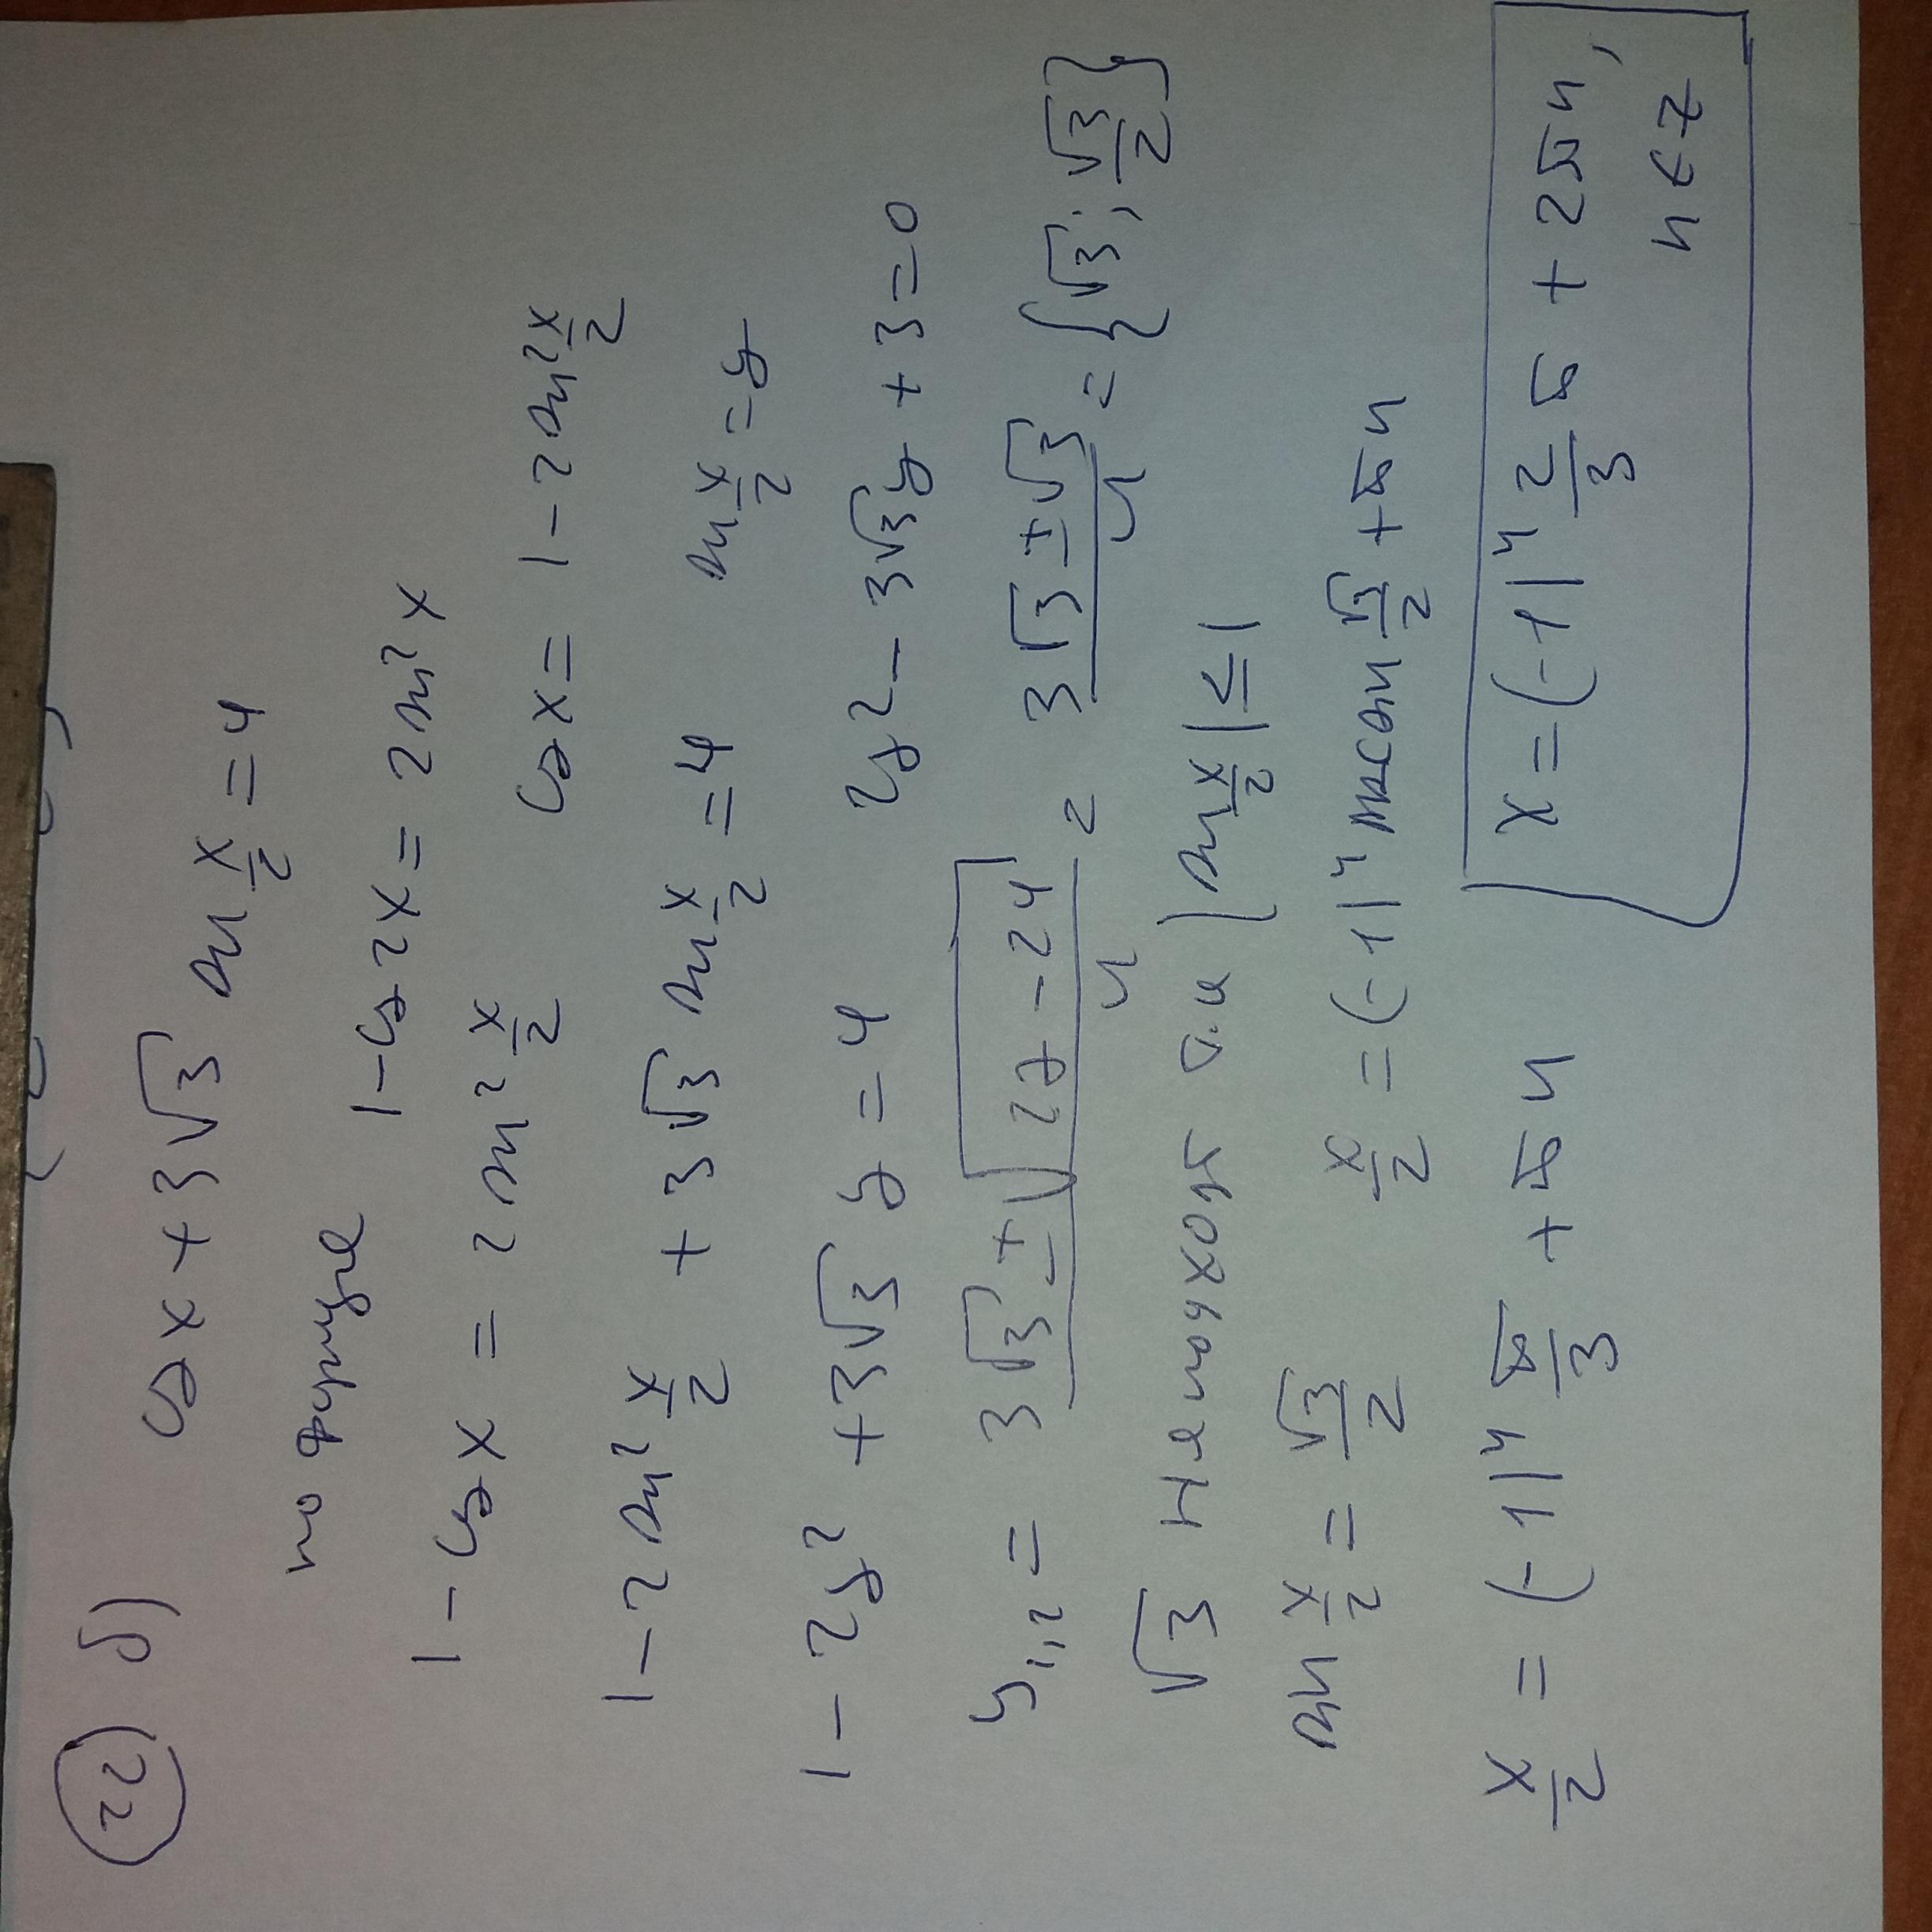 22 б) cos x + 3√3 sin x/2 = 4
по формуле 1 - cos 2x = 2 sin² x
1 - cos x = 2 sin² x/2 cos x = 1 - 2 sin² x/2
1 - 2 sin² x/2 + 3√3 sin x/2 = 4 sin x/2 = y
1 - 2y² + 3√3 y = 4 2y² - 3√3 y + 3 = 0
y₁,₂ = (3√3 ± √(27 - 24))/4 = (3√3 ± √3)/4 = {√3; √3/2}
√3 не подходит т.к |sin x/2| ≤ 1
sin x/2 = √3/2 x/2 = (-1)ⁿ arcsin √3/2 + πn
x/2 = (-1)ⁿ π/3 + πn x = (-1)ⁿ 2/3 π + 2πn,
n ∈ Z